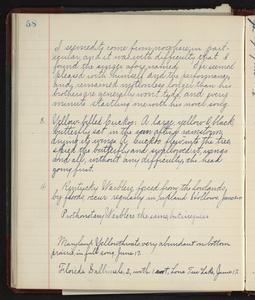 58
I seemed to come from nowhere in part-
icular, and it was with difficulty that I
found the singer afterwards. He seemed
pleased with himself and the performance,
and remained motionless longer than his
brothers are generally wont to do and every
minute startling me with his novel song.
3. Yellow-billed Cuckoo. A large yellow & black
butterfly sat in the sun after a rainstorm
drying its wings. A cuckoo flying the tree
spied the butterfly and swallowed it, wings
and all, without any difficulty, the head
going first.
4. Kentucky Warbler, forced from the lowlands,
by floods, occur regularly in upland hollows, June
Prothonotary Warblers the same, but irregular
Maryland Yellowthroats very abundant on bottom
prairie in full song, June 13.
Florida Gallinule, 2, with nest, Lone Tree Lake, June 13.